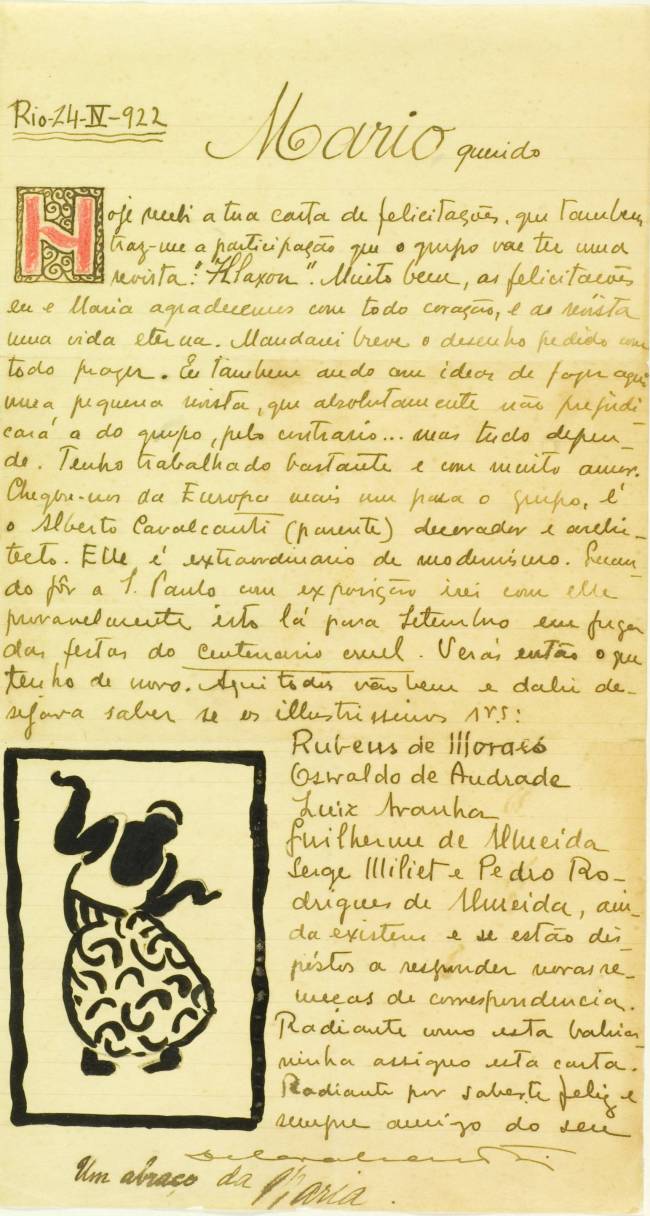 Rio-24-IV-922
Mario querido
Hoje recebi a tua carta de felicitações, que tambem
traz-me a participação que o grupo vae ter uma
revista: "Klaxon". Muito bem, as felicitacões
eu e Maria agradecemos com todo coração, e ao revista
uma vida eterna. Mandarei breve o desenho pedido com
todo prazer. Eu tambem ando com ideas de fazer aqui
uma pequena revista, que absolutamente não prejudi-
cará a do grupo, pelo contrario... mas tudo depen-
de. Tenho trabalhado bastante e com muito amor.
Chegou-nos da Europa mais um para o grupo, é
o Alberto Cavalcanti (parente) decorador e archi-
tecto. Elle é extraordinario de modernismo. Quan-
do fôr a S. Paulo com exposição irei com elle
provavelmente isto lá para Setembro em fuga
das festas do centenario cruel. Verás então o que
tenho de novo. Aqui todos vão bem e dahi de-
sejava saber se os illustrissimos srs:
Rubens de Moraes
Oswaldo de Andrade
Luiz Aranha
Guilherme de Almeida
Serge Miliet e Pedro Ro-
drigues de Almeida, ain-
da existem e se estão dis-
póstos a responder novas re-
meças de correspondencia.
Radiante como esta bahia-
ninha assigno esta carta.
Radiante por saber-te feliz e
sempre amigo do seu
Di Cavalcanti
Um abraço da Maria.